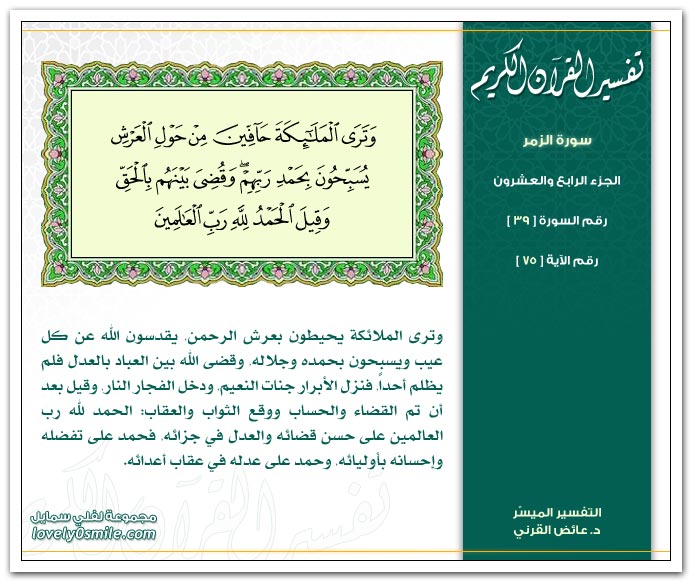 تفسير القرآن الكريم
سورة الزمر
الجزء الرابع والعشرون
رقم السورة [ ٣٩ ]
رقم الآية [ ٧٥ ]
وَتَرَى الْمَلَٰٓئِكَةَ حَآفِّينَ مِنْ حَوْلِ الْعَرْشِ
يُسَبِّحُونَ بِحَمْدِ رَبِّهِمْ ۖ وَقُضِىَ بَيْنَهُم بِالْحَقِّ
وَقِيلَ الْحَمْدُ لِلَّهِ رَبِّ الْعَٰلَمِينَ
وترى الملائكة يحيطون بعرش الرحمن، يقدسون الله عن كل
عيب ويسبحون بحمده وجلاله، وقضى الله بين العباد بالعدل فلم
يظلم أحداً، فنزل الأبرار جنات النعيم، ودخل الفجار النار، وقيل بعد
أن تم القضاء والحساب ووقع الثواب والعقاب: الحمد لله رب
العالمين على حسن قضائه والعدل في جزائه، فحمد على تفضله
وإحسانه بأوليائه، وحمد على عدله في عقاب أعدائه.
تفسير القرآن الكريم
التفسير الميسّر
د. عائض القرني
مجموعة لفلي سمايل
lovely0smile.com